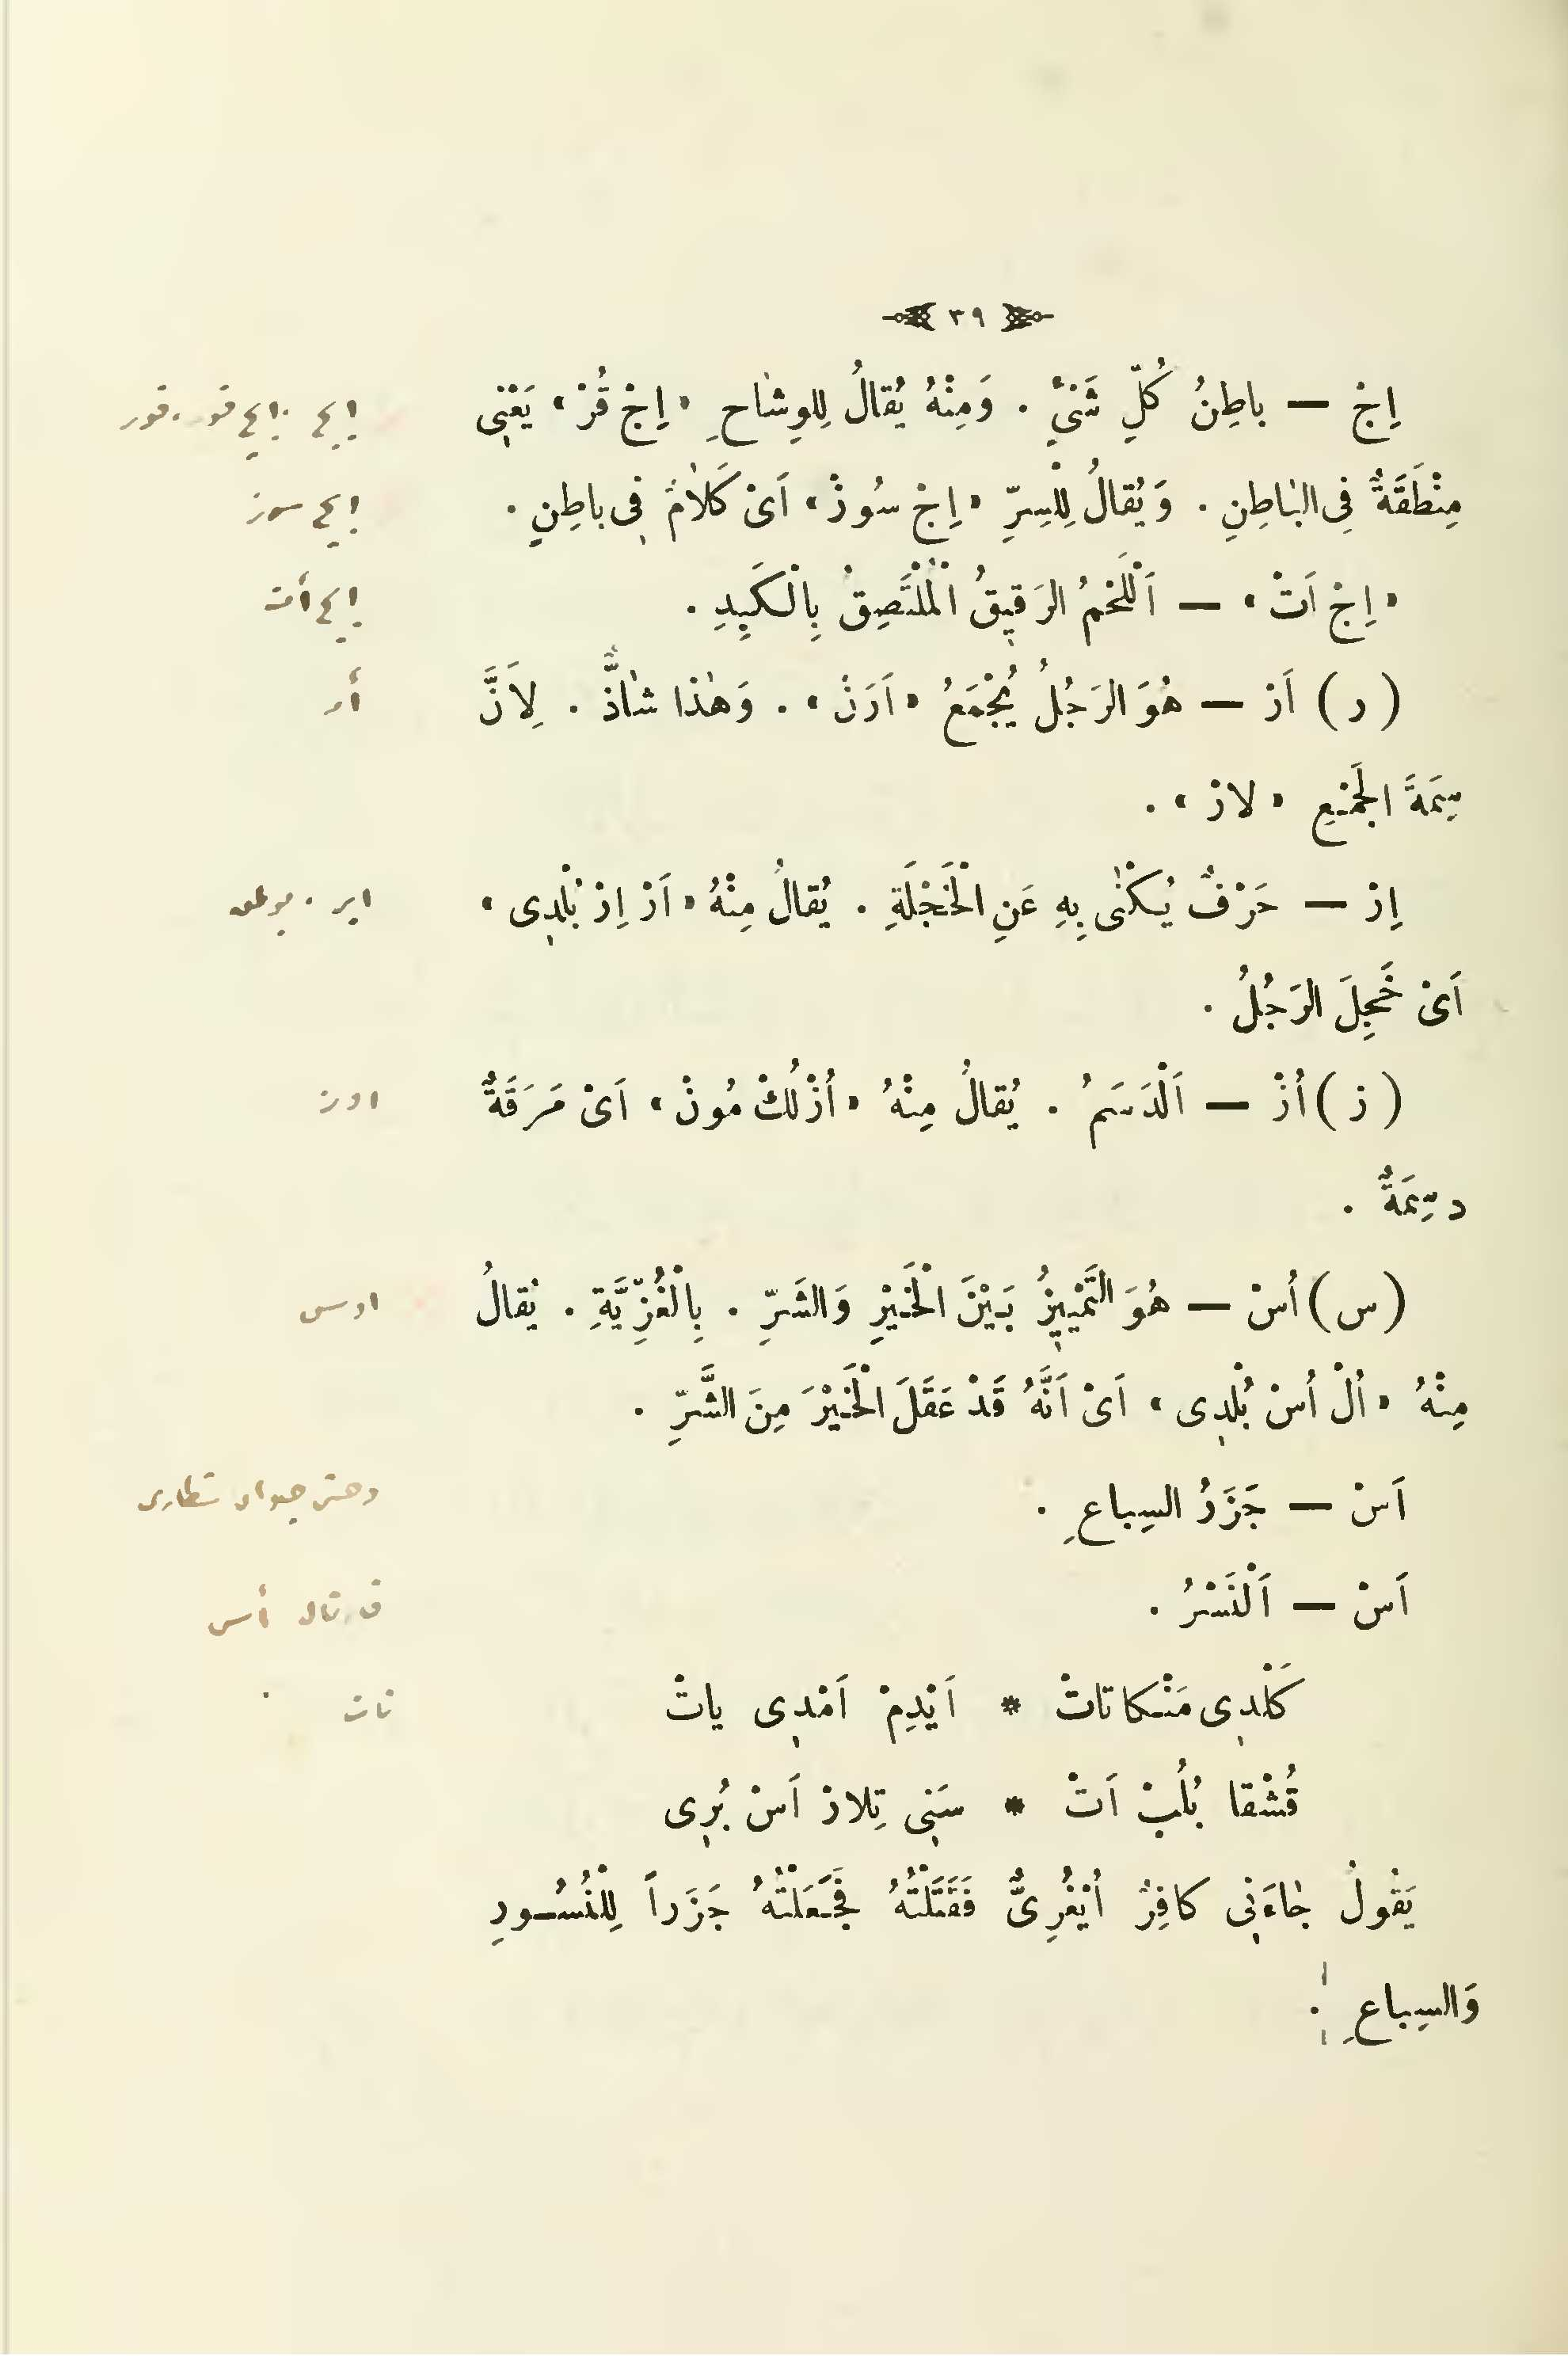 ٣٩
اِجْ — باطِنُ كُلِّ شَىْءٍ . وَمِنْهُ يُقالُ لِلوِشاحِ « اِجْ قُرْ » يَعْنِى
مِنْطَقَةٌ فِى الباطِنِ . وَيُقالُ لِلْسِرِّ « اِجْ سُوزْ » اَىْ كَلاٰمٌ فِى باطِنٍ .
« اِجْ اَتْ » — اَلْلَحْمُ الرَقيقُ الْمُلْتَصِقُ بِالْكَبِدِ .
( ر ) اَرْ — هُوَ الرَجُلُ يُجْمَعُ « اَرَنْ » . وَهٰذا شاذٌّ . لِاَنَّ
سِمَةَ الجَمْعِ « لارْ » .
اِرْ — حَرْفٌ يُكْنٰى بِهِ عَنِ الْخَجْلَةِ . يُقالُ مِنْهُ « اَرْ اِرْ بُلْدِى »
اَىْ خَجِلَ الرَجُلُ .
( ز ) اُزْ — اَلْدَسَمُ . يُقالُ مِنْهُ « اُزْ لُكْ مُونْ » اَىْ مَرَقَةٌ
دسِمَةٌ .
( س ) اُسْ — هُوَ التَمْيِيزُ بَيْنَ الْخَيْرِ وَالشَرِّ . بِالْغُزِّيَّةِ . يُقالُ
مِنْهُ « اُلْ اُسْ بُلْدِى » اَىْ اَنَّهُ قَدْ عَقَلَ الْخَيْرَ مِنَ الشَّرِّ .
اَسْ — جَزَرُ السِباعِ .
اَسْ — اَلْنَسْرُ .
كَلْدِى مَنْكا تاتْ * اَيْدِمْ اَمْدِى ياتْ
قُشْقا بُلُبْ اَتْ * سَنِى تِلارْ اَسْ بُرِى
يَقُولُ جاءَنِى كافِرٌ اُيْغُرِىٌّ فَقَتَلْتُهُ فَجَعَلْتُهُ جَزَراً لِلْنُسُورِ
وَالسِباعِ .
ايچ
ايچ سوز
ايچ أت
أر
اير
اوز
اوس
أس
تات